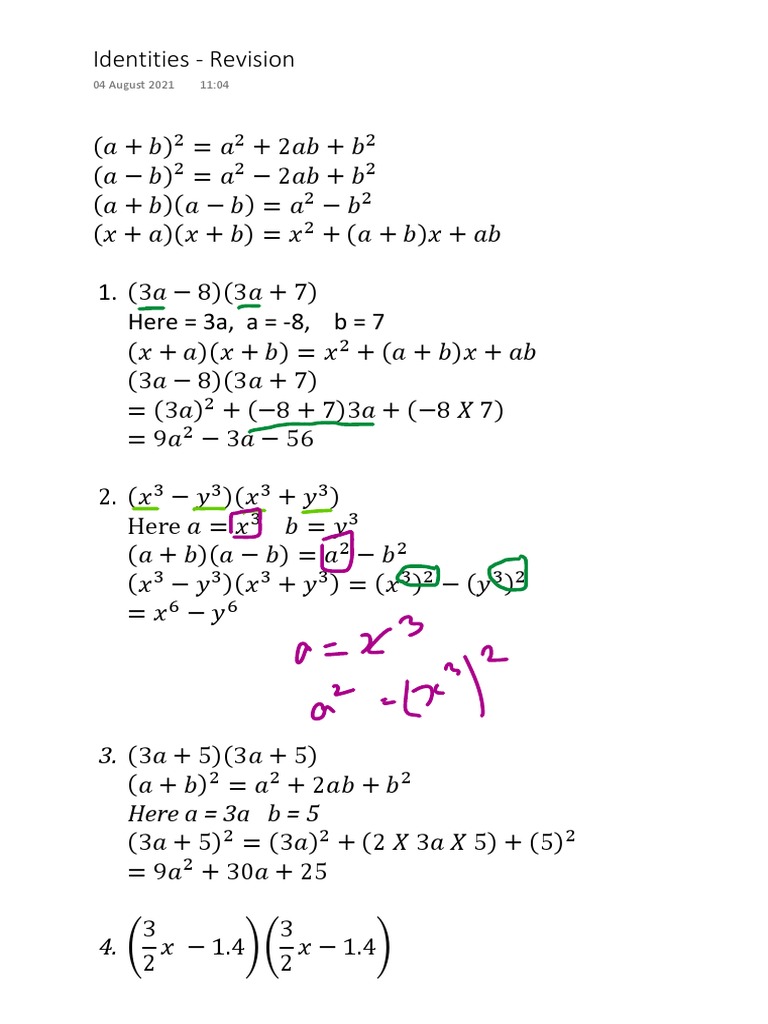 Identities - Revision
04 August 2021 11:04
(a + b)² = a² + 2ab + b²
(a − b)² = a² − 2ab + b²
(a + b)(a − b) = a² − b²
(x + a)(x + b) = x² + (a + b)x + ab
1. (3a − 8)(3a + 7)
Here = 3a, a = -8, b = 7
(x + a)(x + b) = x² + (a + b)x + ab
(3a − 8)(3a + 7)
= (3a)² + (−8 + 7)3a + (−8 X 7)
= 9a² − 3a − 56
2. (x³ − y³)(x³ + y³)
Here a = x³ b = y³
(a + b)(a − b) = a² − b²
(x³ − y³)(x³ + y³) = (x³)² − (y³)²
= x⁶ − y⁶
a = x³
a² = (x³)²
3. (3a + 5)(3a + 5)
(a + b)² = a² + 2ab + b²
Here a = 3a b = 5
(3a + 5)² = (3a)² + (2 X 3a X 5) + (5)²
= 9a² + 30a + 25
4. (3/2 x − 1.4)(3/2 x − 1.4)